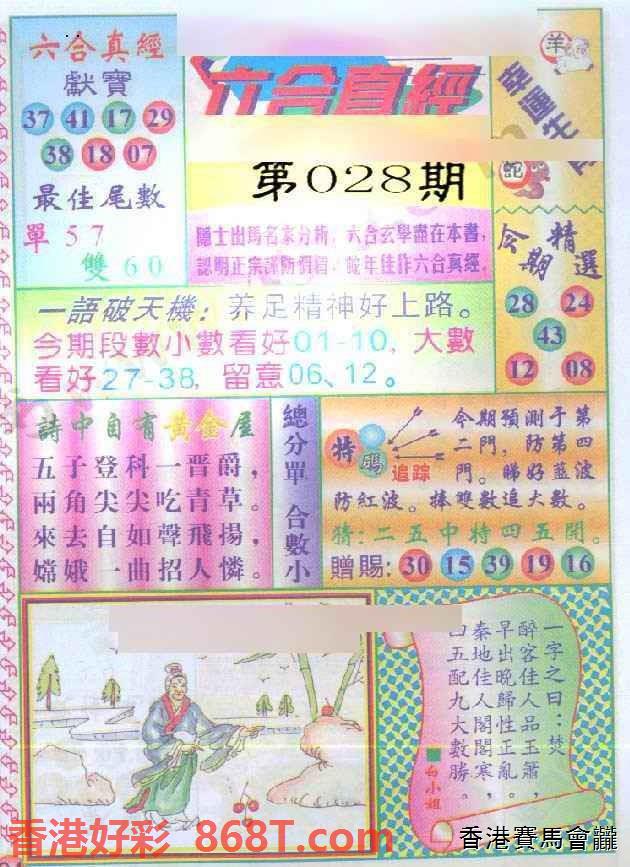 六合真經
獻寶
37 41 17 29
38 18 07
最佳尾數
單57
雙60
六合真經
第028期
隱士出馬名家分析，六合玄學盡在本書，
認明正宗謹防假冒，蛇年佳作六合真經。
羊
幸運生
蛇
今期精選
28 24
43
12 08
一語破天機：养足精神好上路。
今期段數小數看好01-10，大數
看好27-38，留意06、12。
詩中自有黃金屋
五子登科一晋爵，
兩角尖尖吃青草。
來去自如聲飛揚，
嫦娥一曲招人憐。
總分單 合數小
特碼
追踪
今期預測于第
二門，防第四
門。睇好藍波
防紅波。捧雙數追大數。
猜：二五中特四五開。
贈賜：30 15 39 19 16
一字之曰：焚
醉客佳人品玉簫，
早出晚歸性正亂。
秦地佳人閣閣寒，
四五配九大數勝。
白小姐
香港好彩 868T.com
香港賽馬會